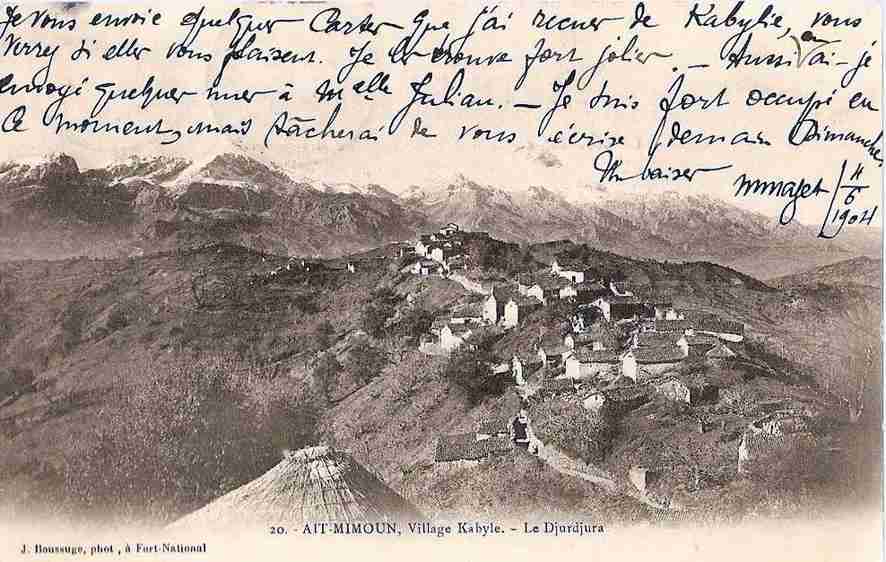 Je vous envoie quelques Cartes que j'ai recues de Kabylie, vous
verrez si elles vous plaisent. Je les trouve fort jolies. - Aussi en ai-je
envoyé quelques unes à Melle Julian. - Je suis fort occupé en
ce moment, mais tâcherai de vous écrire demain Dimanche.
Un baiser
4/6 1904
20. - AIT-MIMOUN, Village Kabyle. - Le Djurdjura
J. Boussuge, phot, à Fort-National